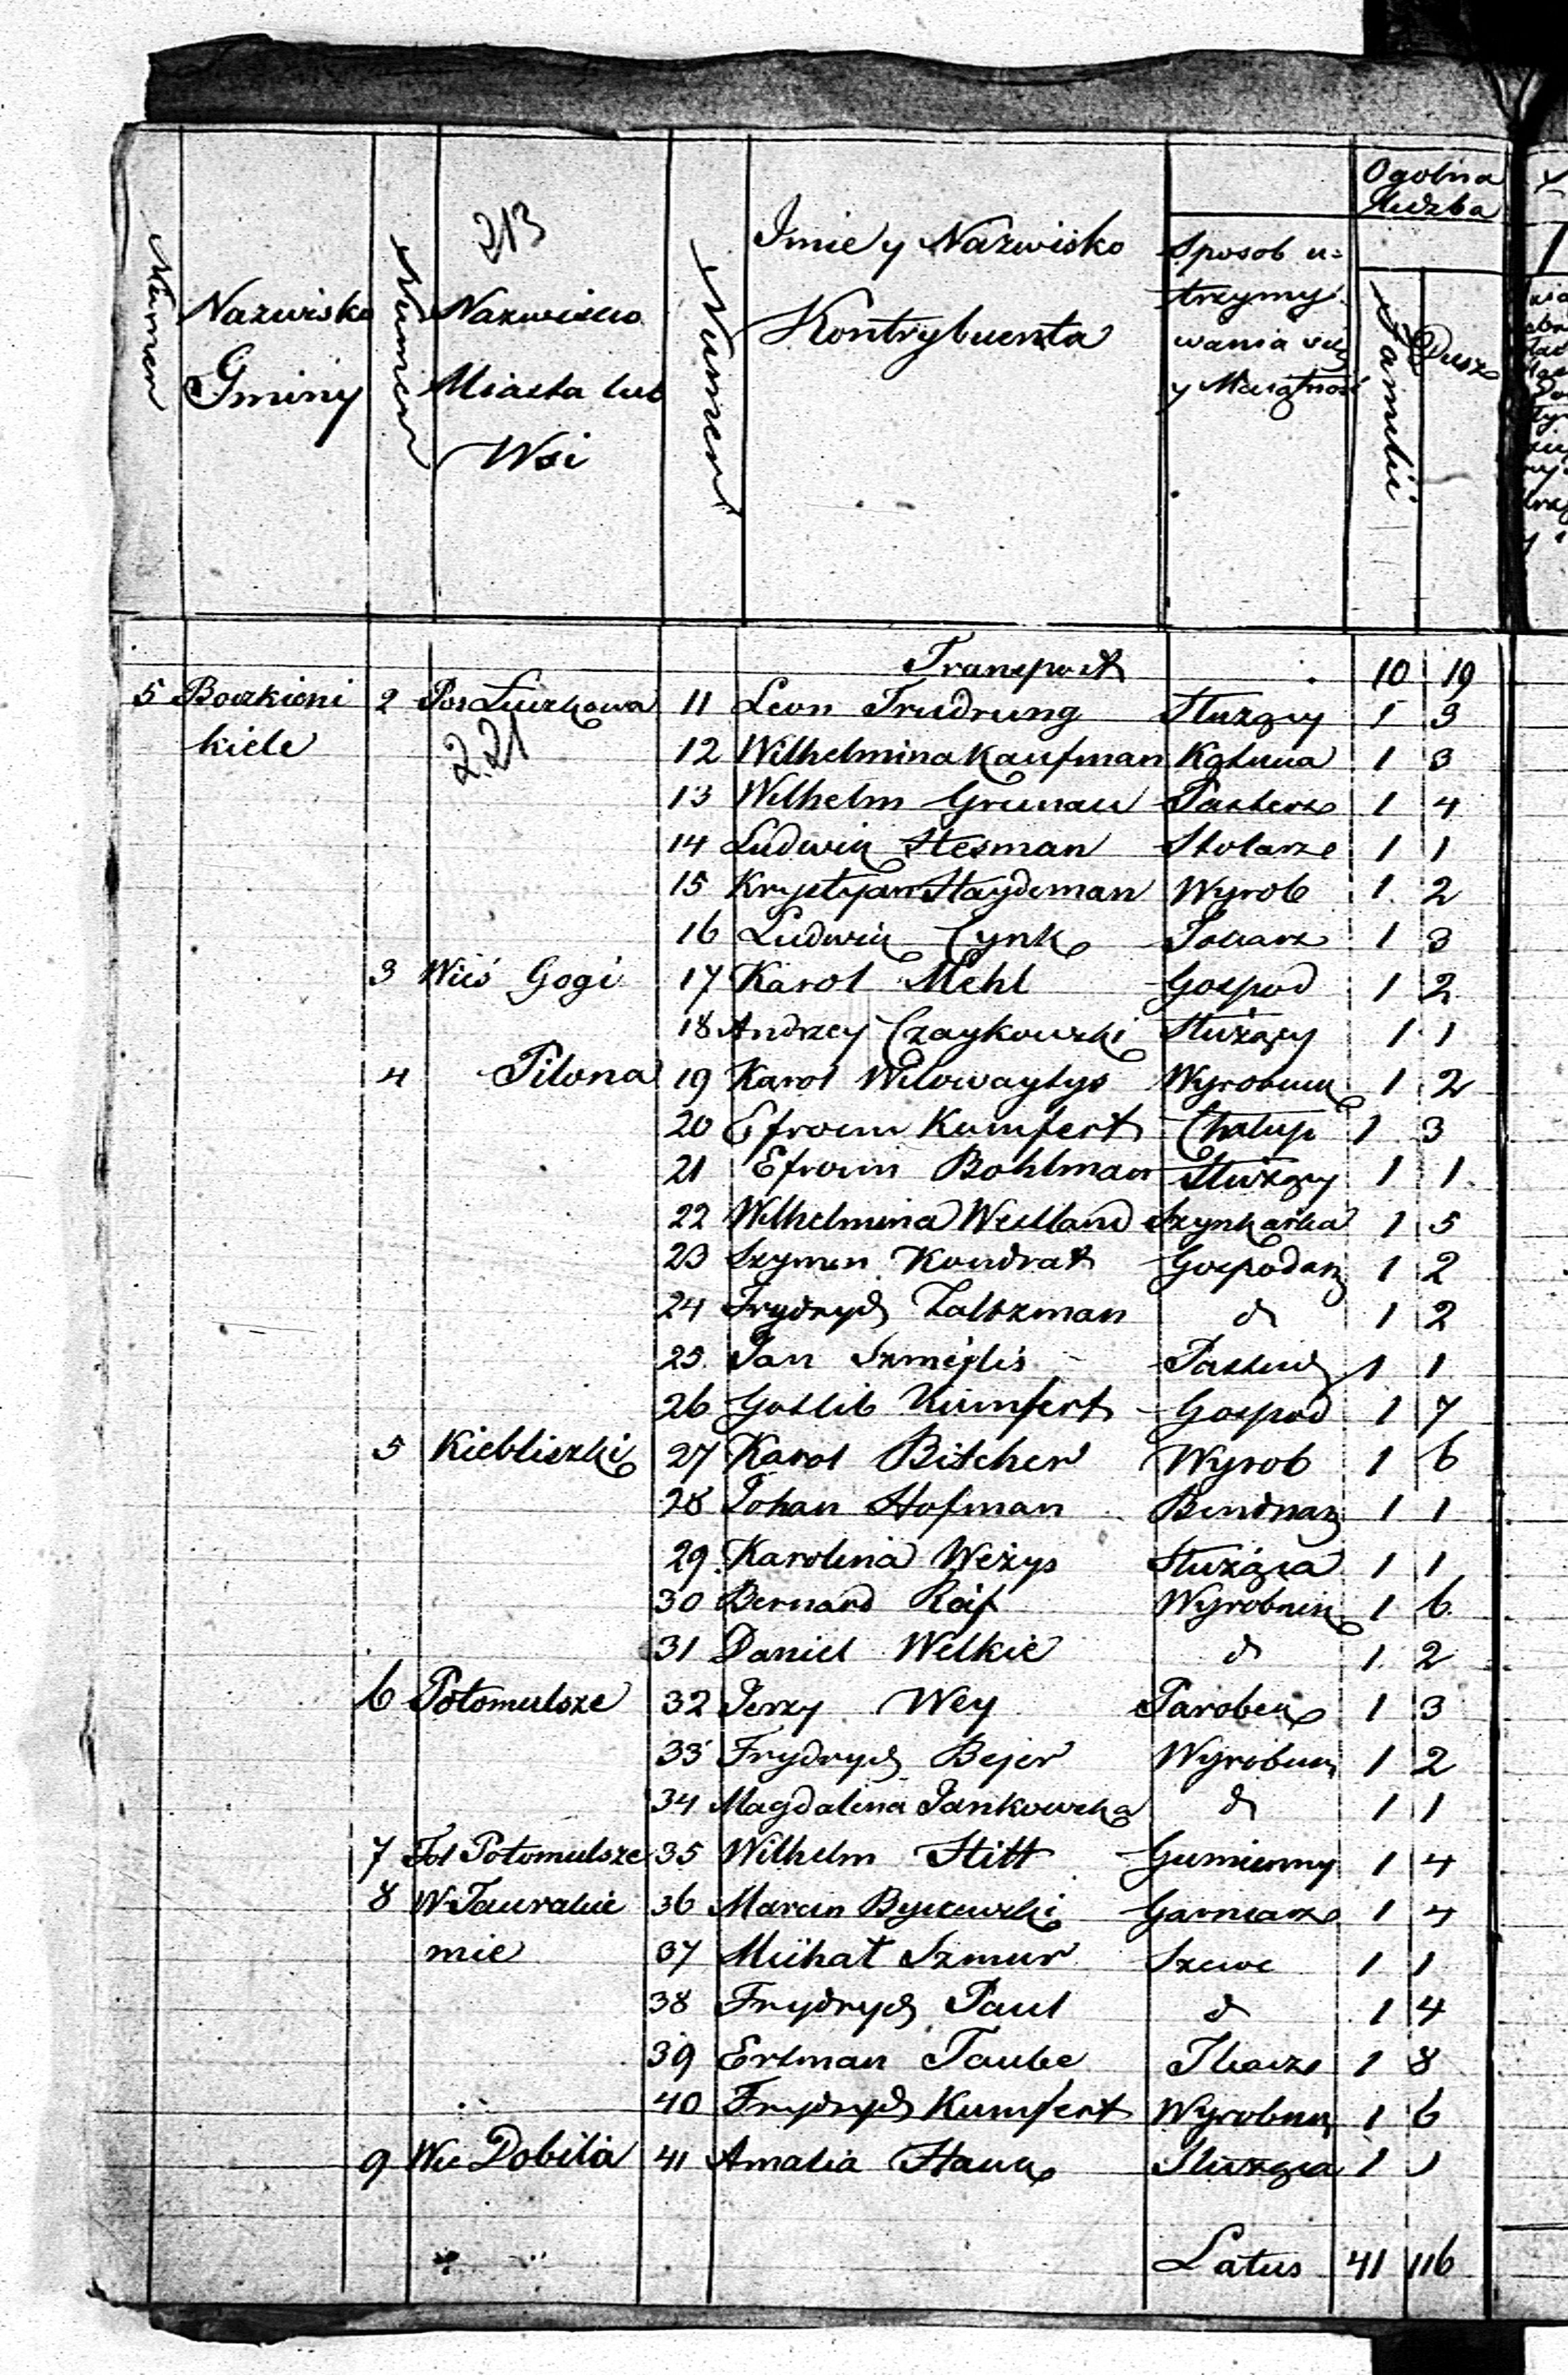 Numer
Nazwisko Gminy
Numer
213
Nazwisko Miasta lub Wsi
Numer
Imie y Nazwisko Kontrybuenta
Sposob u=
trzymy
wania się
y Maiątność
Ogolna
liczba
Familii
Dusz
Transport 10 19
5 Boczkieni 2 Pos 11 Leon Trudrung Służący 1 3
kiele 2.21 12 Wilhelmina Kaufman 1 3
13 Wilhelm Grunau Pasterz 1 4
14 Ludwik Stesman Stolarz 1 1
15 Krystyan Haydeman Wyrob 1 2
16 Ludwik Cynk 1 3
3 Wieś Gogi 17 Karol Mehl Gospod 1 2
18 Andrzey Czaykowski Służący 1 1
4 Pilona 19 Karol Wilowaytys Wyrobnik 1 2
20 Efroim Kumfert Chałup 1 3
21 Efroim Bohlman Służący 1 1
22 Wilhelmina Westland Szynkarka 1 5
23 Szymon Kondrat Gospodarz 1 2
24 Frydrych Zaltzman d 1 2
25 Jan Pastuch 1 1
26 Gotlib Kumfert Gospod 1 7
5 Kiebliszki 27 Karol Bitcher Wyrob 1 6
28 Johan Hofman Bendnarz 1 1
29 Karolina Weżys Służąca 1 1
30 Bernard Reif Wyrobnik 1 6
31 Daniel Welkie d 1 2
6 Połomulsze 32 Jerzy Wey Parobek 1 3
33 Frydrych Bejer Wyrobnik 1 2
34 Magdalena Jankowska d 1 1
7 Fol Połomulsze 35 Wilhelm Stitt Gumienny 1 4
8 W Taurakie 36 Marcin Garncarz 1 4
mie 37 Michał Szmur Szewc 1 1
38 Frydrych Paul d 1 4
39 Ertman Taube Tkacz 1 8
40 Frydrych Kumfert Wyrobnik 1 6
9 Wie Dobila 41 Amalia Hauk Służąca 1 1
Latus 41 116